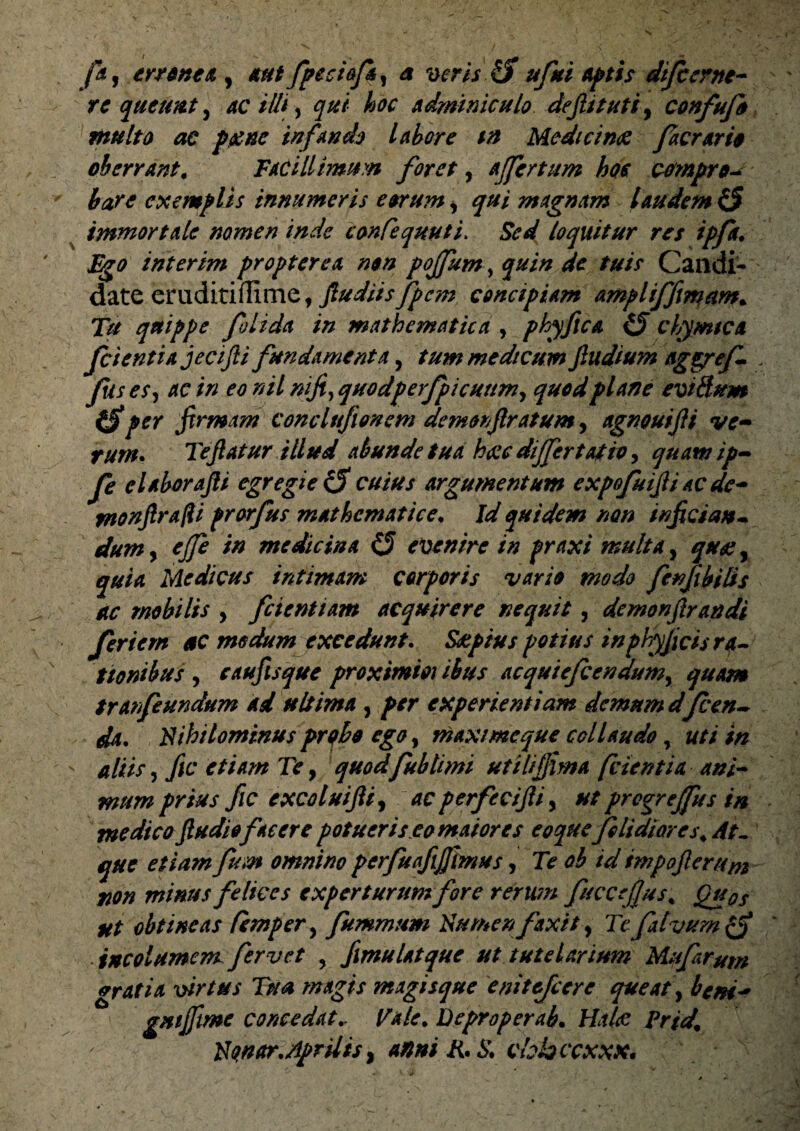 ſa, erronea, aut ſpecioſa, a veris & uſui aptis diſcerne-
re queunt, ac illi, qui hoc adminiculo deſtituti, confuſo
multo ac pæne infando labore in Medicinæ ſacrario
oberrant. Facillimum foret, aſſertum hoc compro-
bare exemplis innumeris eorum, qui magnam laudem &
immortale nomen inde conſequuti. Sed loquitur res ipſa.
Ego interim propterea non poſſum, quin de tuis Candi-
date eruditiſſime, ſtudiis ſpem concipiam ampliſſimam.
Tu quippe ſolida in mathematica, phyſica & chymica
ſcientia jeciſti fundamenta, tum medicum ſtudium aggreſ-
ſus es, ac in eo nil niſi, quod perſpicuum, quod plane evictum
& per firmam concluſionem demonſtratum, agnouiſti ve-
rum. Teſtatur illud abunde tua hæc diſſertatio, quam ip-
ſe elaboraſti egregie & cuius argumentum expoſuiſti ac de-
monſtraſti prorſus mathematice. Id quidem non infician-
dum, eſſe in medicina & evenire in praxi multa, quæ,
quia Medicus intimam corporis vario modo ſenſibilis
ac mobilis, ſcientiam acquirere nequit, demonſtrandi
ſeriem ac modum excedunt. Sæpius potius in phyſicis ra-
tionibus, cauſisque proximioribus acquieſcendum, quam
tranſeundum ad ultima, per experientiam demum dſcen-
da. Nihilominus probo ego, maximeque collaudo, uti in
aliis, ſic etiam Te, quod ſublimi utiliſſima ſcientia ani-
mum prius ſic excoluiſti, ac perfeciſti, ut progreſſus in
medico ſtudio facere potueris eo maiores eoque ſolidiores. At-
que etiam ſum omnino perſuaſiſſimus, Te ob id impoſterum
non minus felices experturum fore rerum ſucceſſus. Quos
ut obtineas ſemper, ſummum Numen faxit, Te ſalvum &
incolumem ſervet, ſimulatque ut tutelarium Muſarum
gratia virtus Tua magis magisque eniteſcere queat, beni-
gniſſime concedat. Vale. Deproperab. Halæ Prid.
Nonar. Aprilis, anni R. S. cIↃIↃccxxx.